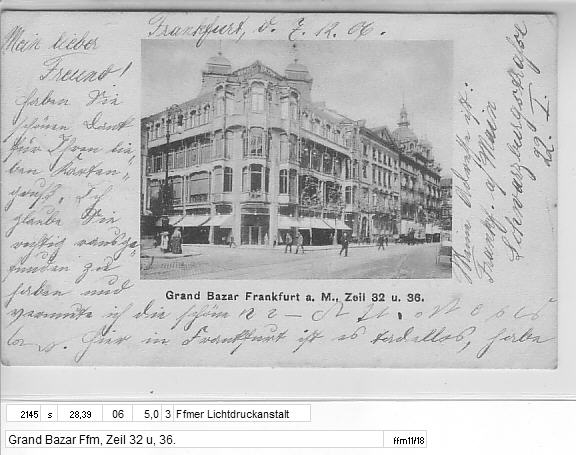 Frankfurt, d. 7. 12. 06.
Mein lieber
Freund!
Haben Sie
schönen Dank
für Ihren lie-
ben Karten-
gruß. Ich
glaube Sie
richtig rausge-
funden zu
haben und
vermute ich die schöne
Hier in Frankfurt ist es tadellos, habe
Meine Adresse ist:
Frankf. a/Main
Schwarzburgstraße
22. I.
Grand Bazar Frankfurt a. M., Zeil 32 u. 36.
2145 s 28,39 06 5,0 3 Ffmer Lichtdruckanstalt
Grand Bazar Ffm, Zeil 32 u, 36. ffm11f18